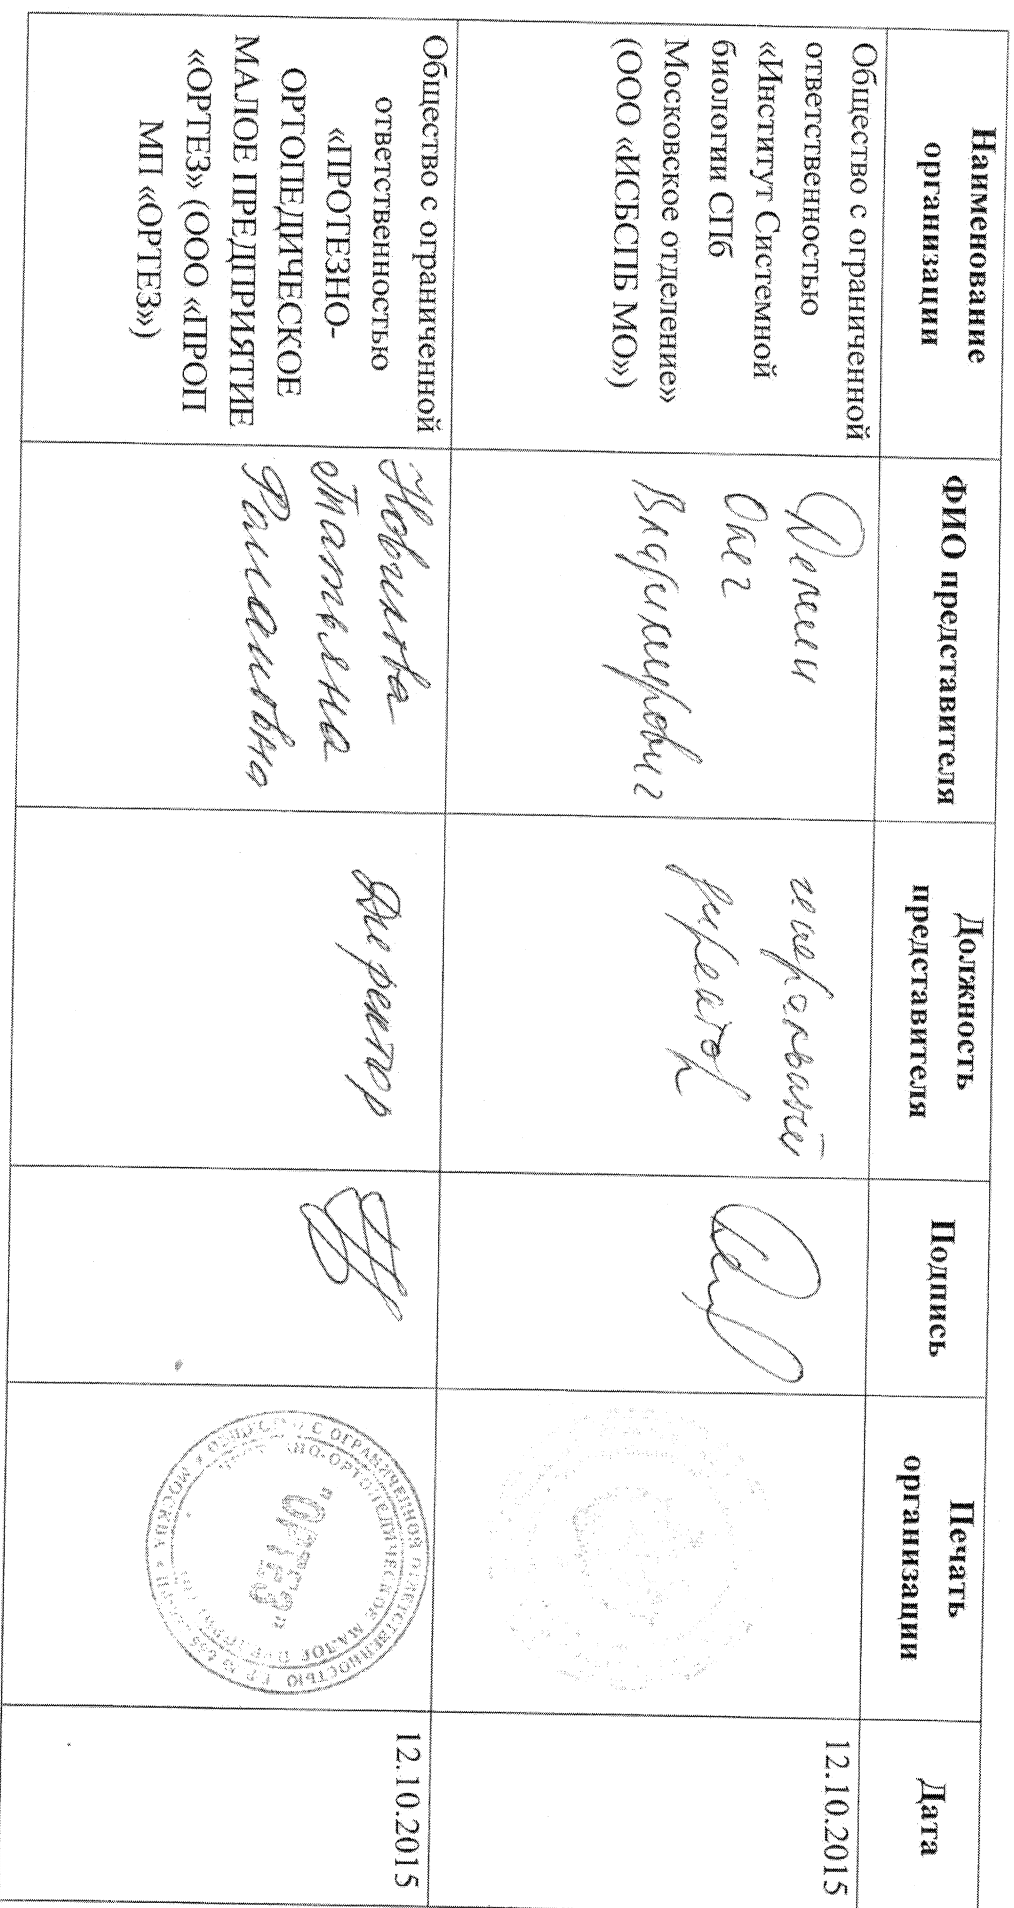 Наименование
организации
ФИО представителя
Должность
представителя
Подпись
Печать
организации
Дата
Общество с ограниченной
ответственностью
«Институт Системной
биологии СПб
Московское отделение»
(ООО «ИСБСПБ МО»)
Демин
Олег
Владимирович
генеральный
директор
12.10.2015
Общество с ограниченной
ответственностью
«ПРОТЕЗНО-
ОРТОПЕДИЧЕСКОЕ
МАЛОЕ ПРЕДПРИЯТИЕ
«ОРТЕЗ» (ООО «ПРОП
МП «ОРТЕЗ»)
Татьяна
Романовна
Директор
ОБЩЕСТВО С ОГРАНИЧЕННОЙ ОТВЕТСТВЕННОСТЬЮ
МОСКВА
ОРТОПЕДИЧЕСКОЕ МАЛОЕ
"Ортез"
12.10.2015